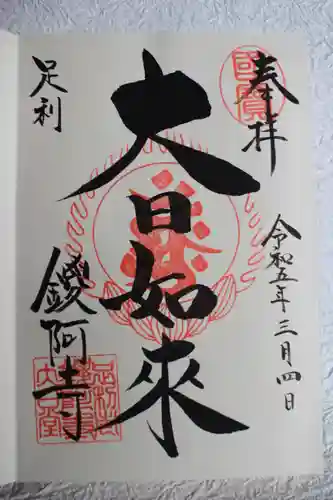 奉拝
國寳
令和五年三月四日
大日如來
足利
鑁阿寺